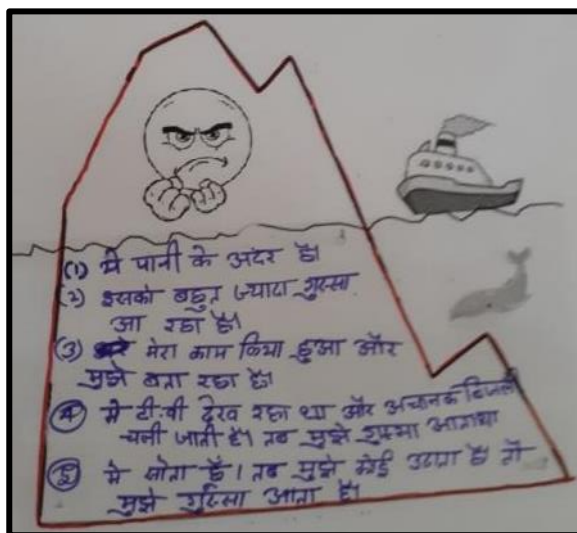 (1) मे पानी के अंदर है।
(2) इसको बहुत ज्यादा गुस्सा
आ रहा है।
(3) मेरा काम किया हुआ और
मुझे बता रहा है।
(4) मे टी.वी देख रहा था और अचानक बिजली
चली जाती है। तब मुझे आता
(5) मे सोता है। तब मुझे कोई उठाता है। तो
मुझे गुस्सा आता है।